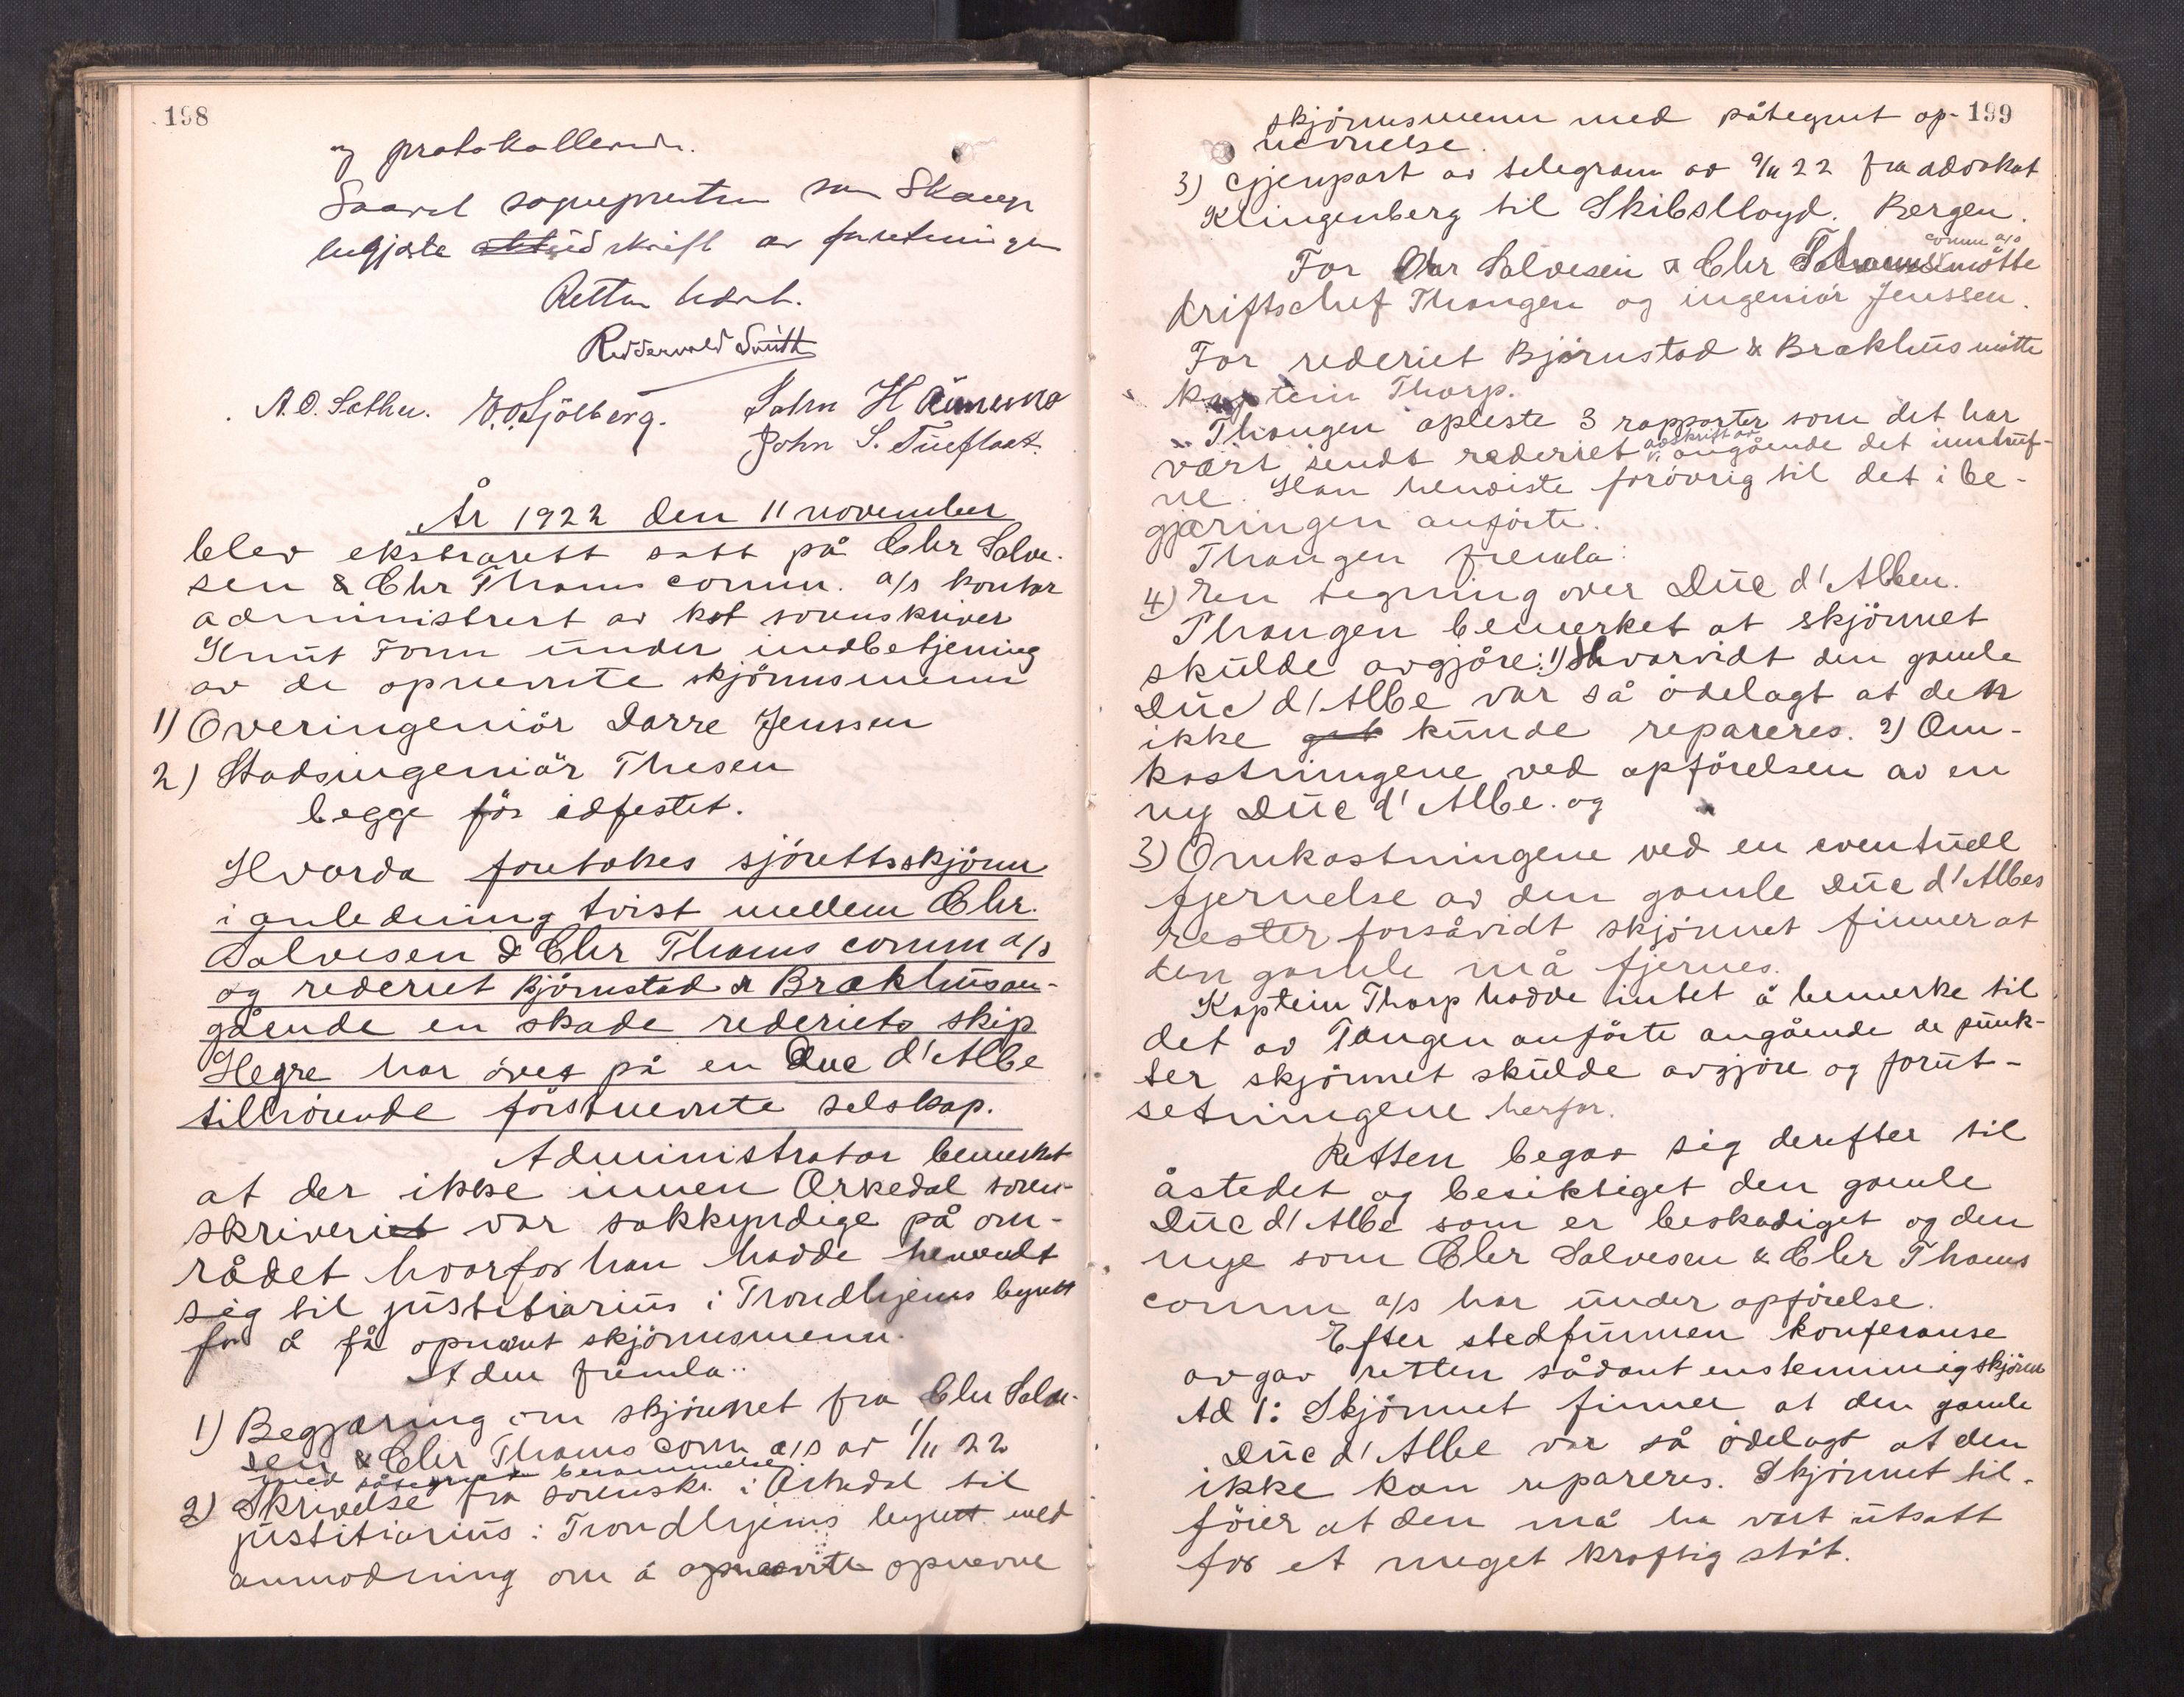 198
og protokollerende.
Saavel sognepresten som Skaug
begjærte utskrift av forretningen
Retten hævet.
Reddervold Smith
A. O. Sæther. E. O. Sjölberg. John H
John S.
År 1922 den 11 november
blev ekstrarett satt på Chr Salve-
sen & Chr Thams comm. a/s kontor
administrert av kst sorenskriver
Knut Tonn under medbetjening
av de opnevnte skjönnsmenn
1) Overingeniör Darre Jenssen
2) Stadsingeniör Thesen
begge för edfestet.
Hvorda foretokes sjörettsskjönn
i anledning tvist mellem Chr.
Salvesen & Chr Thams comm a/s
og rederiet Björnstad & Brækhus an-
gående en skade rederiets skip
Hegre har övet på en Duc d'Albe
tilhörende förstnevnte selskap.
Administrator bemerket
at der ikke innen Orkedal soren-
skriveriet var sakkyndige på om-
rådet hvorfor han hadde henvendt
sig til justitiarius i Trondhjems byrett
for å få opnevnt skjönnsmenn.
Aden fremla:
1) Begjæring om skjönnet fra Chr Salve-
sen & Chr Thams comm a/s av 1/11 22
med påtegnet berammelse.
2) Skrivelse fra sorenskr. i Orkedal til
justitiarius i Trondhjems byrett med
anmodning om å opnevnte opnevne
199
skjönnsmenn med påtegnet op-
nevnelse.
3) Gjenpart av telegram av 9/11 22 fra advokat
Klingenberg til Skibslloyd. Bergen.
comm a/s
For Chr Salvesen & Chr Thams mötte
driftschef Thangen og ingeniör Jenssen.
For rederiet Björnstad & Brækhus mötte
kaptein Thorp.
Thangen opleste 3 rapporter som det har
avskrift av
vært sendt rederiet angående det inntruf-
ne. Han henviste forövrig til det i be-
gjæringen anförte.
Thangen fremla:
4) En tegning over Duc d'Alben.
Thangen bemerket at skjönnet
skulde avgjöre: 1) Hvorvidt den gamle
Duc d'Albe var så ödelagt at den
ikke kunde repareres. 2) Om-
kostningene ved opförelsen av en
ny Duc d'Albe. og
3) Omkostningene ved en eventuell
fjernelse av den gamle Duc d'Albes
rester forsåvidt skjönnet finner at
den gamle må fjernes.
Kaptein Thorp hadde intet å bemerke til
det av Tangen anförte angående de punk-
ter skjönnet skulde avgjöre og forut-
setningene herfor.
Retten begav sig derefter til
åstedet og besiktiget den gamle
Duc d'Albe som er beskadiget og den
nye som Chr Salvesen & Chr Thams
comm a/s har under opförelse.
Efter stedfunnen konferanse
avgav retten sådant enstemmig skjönn
Ad 1: Skjönnet finner at den gamle
Duc d'Albe var så ödelagt at den
ikke kan repareres. Skjönnet til-
föier at den må ha vært utsatt
for et meget kraftig stöt.